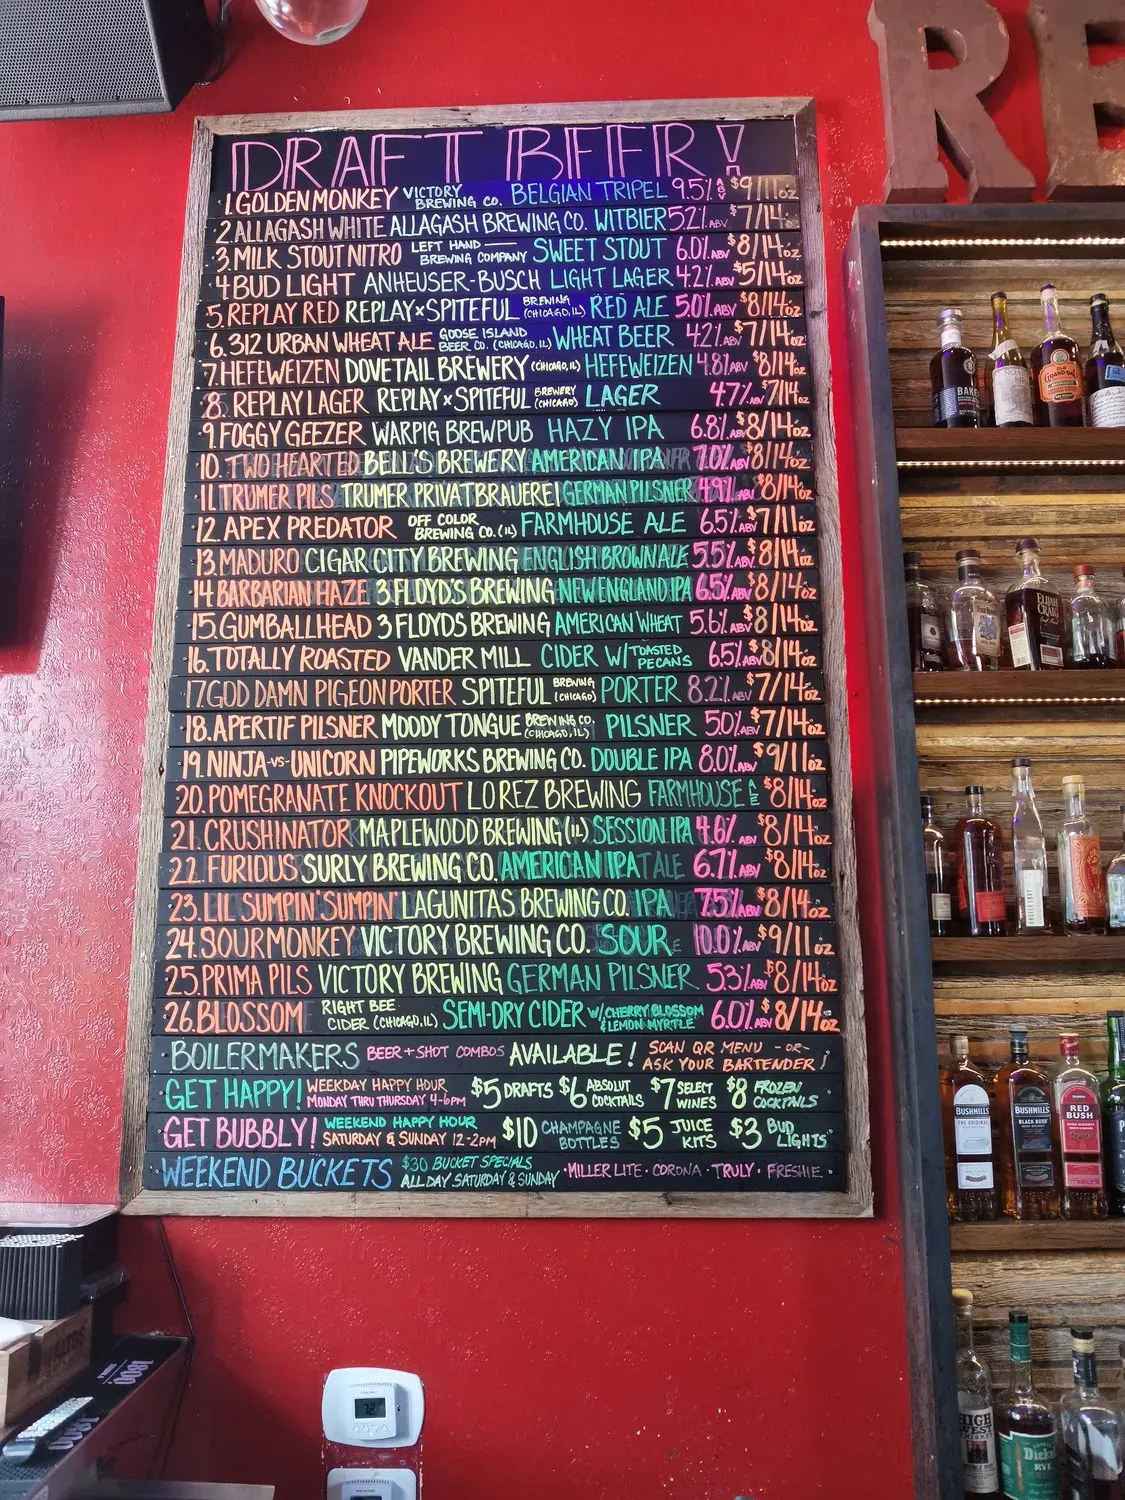 RE
DRAFT BEER!
1. GOLDEN MONKEY VICTORY BREWING CO. BELGIAN TRIPEL 9.5% ABV $9/11oz
2. ALLAGASH WHITE ALLAGASH BREWING CO. WITBIER 5.2% ABV $7/14oz
3. MILK STOUT NITRO LEFT HAND BREWING COMPANY SWEET STOUT 6.0% ABV $8/14oz
4 BUD LIGHT ANHEUSER-BUSCH LIGHT LAGER 4.2% ABV $5/14oz
5. REPLAY RED REPLAY x SPITEFUL BREWING (CHICAGO, IL) RED ALE 5.0% ABV $8/14oz
6. 312 URBAN WHEAT ALE GOOSE ISLAND BEER CO. (CHICAGO, IL) WHEAT BEER 4.2% ABV $7/14oz
7. HEFEWEIZEN DOVETAIL BREWERY (CHICAGO, IL) HEFEWEIZEN 4.8% ABV $8/14oz
8. REPLAY LAGER REPLAY x SPITEFUL BREWERY (CHICAGO) LAGER 4.7% ABV $7/14oz
9. FOGGY GEEZER WARPIG BREWPUB HAZY IPA 6.8% ABV $8/14oz
10. TWO HEARTED BELL'S BREWERY AMERICAN IPA 7.0% ABV $8/14oz
11. TRUMER PILS TRUMER PRIVATBRAUEREI GERMAN PILSNER 4.9% ABV $8/14oz
12. APEX PREDATOR OFF COLOR BREWING CO. (IL) FARMHOUSE ALE 6.5% ABV $7/11oz
13. MADURO CIGAR CITY BREWING ENGLISH BROWN ALE 5.5% ABV $8/14oz
14 BARBARIAN HAZE 3 FLOYD'S BREWING NEW ENGLAND IPA 6.5% ABV $8/14oz
15. GUMBALLHEAD 3 FLOYDS BREWING AMERICAN WHEAT 5.6% ABV $8/14oz
16. TOTALLY ROASTED VANDER MILL CIDER W/ TOASTED PECANS 6.5% ABV $8/14oz
17. GOD DAMN PIGEON PORTER SPITEFUL BREWING (CHICAGO) PORTER 8.2% ABV $7/14oz
18. APERTIF PILSNER MOODY TONGUE BREWING CO. (CHICAGO, IL) PILSNER 5.0% ABV $7/14oz
19. NINJA -VS- UNICORN PIPEWORKS BREWING CO. DOUBLE IPA 8.0% ABV $9/11oz
20. POMEGRANATE KNOCKOUT LO REZ BREWING FARMHOUSE ALE $8/14oz
21. CRUSHINATOR MAPLEWOOD BREWING (IL) SESSION IPA 4.6% ABV $8/14oz
22. FURIOUS SURLY BREWING CO. AMERICAN IPA 6.7% ABV $8/14oz
23. LIL SUMPIN' SUMPIN' LAGUNITAS BREWING CO. IPA 7.5% ABV $8/14oz
24. SOUR MONKEY VICTORY BREWING CO. SOUR 10.0% ABV $9/11oz
25. PRIMA PILS VICTORY BREWING GERMAN PILSNER 5.3% ABV $8/14oz
26. BLOSSOM RIGHT BEE CIDER (CHICAGO, IL) SEMI-DRY CIDER W/ CHERRY BLOSSOM & LEMON MYRTLE 6.0% ABV $8/14oz
BOILERMAKERS BEER + SHOT COMBOS AVAILABLE! SCAN QR MENU -OR- ASK YOUR BARTENDER!
GET HAPPY! WEEKDAY HAPPY HOUR MONDAY THRU THURSDAY 4-6PM $5 DRAFTS $6 ABSOLUT COCKTAILS $7 SELECT WINES $8 FROZEN COCKTAILS
GET BUBBLY! WEEKEND HAPPY HOUR SATURDAY & SUNDAY 12-2PM $10 CHAMPAGNE BOTTLES $5 JUICE KITS $3 BUD LIGHTS
WEEKEND BUCKETS $30 BUCKET SPECIALS ALL DAY SATURDAY & SUNDAY · MILLER LITE · CORONA · TRULY · FRESHIE ·
ELIJAH CRAIG
BUSHMILLS
BUSHMILLS
RED BUSH
HIGH WEST
1800
1800
72